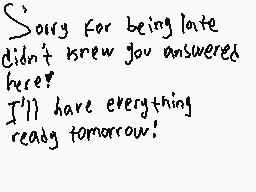 Sorry for being late
didn't knew you answered
here!
I'll have everything
ready tomorrow!